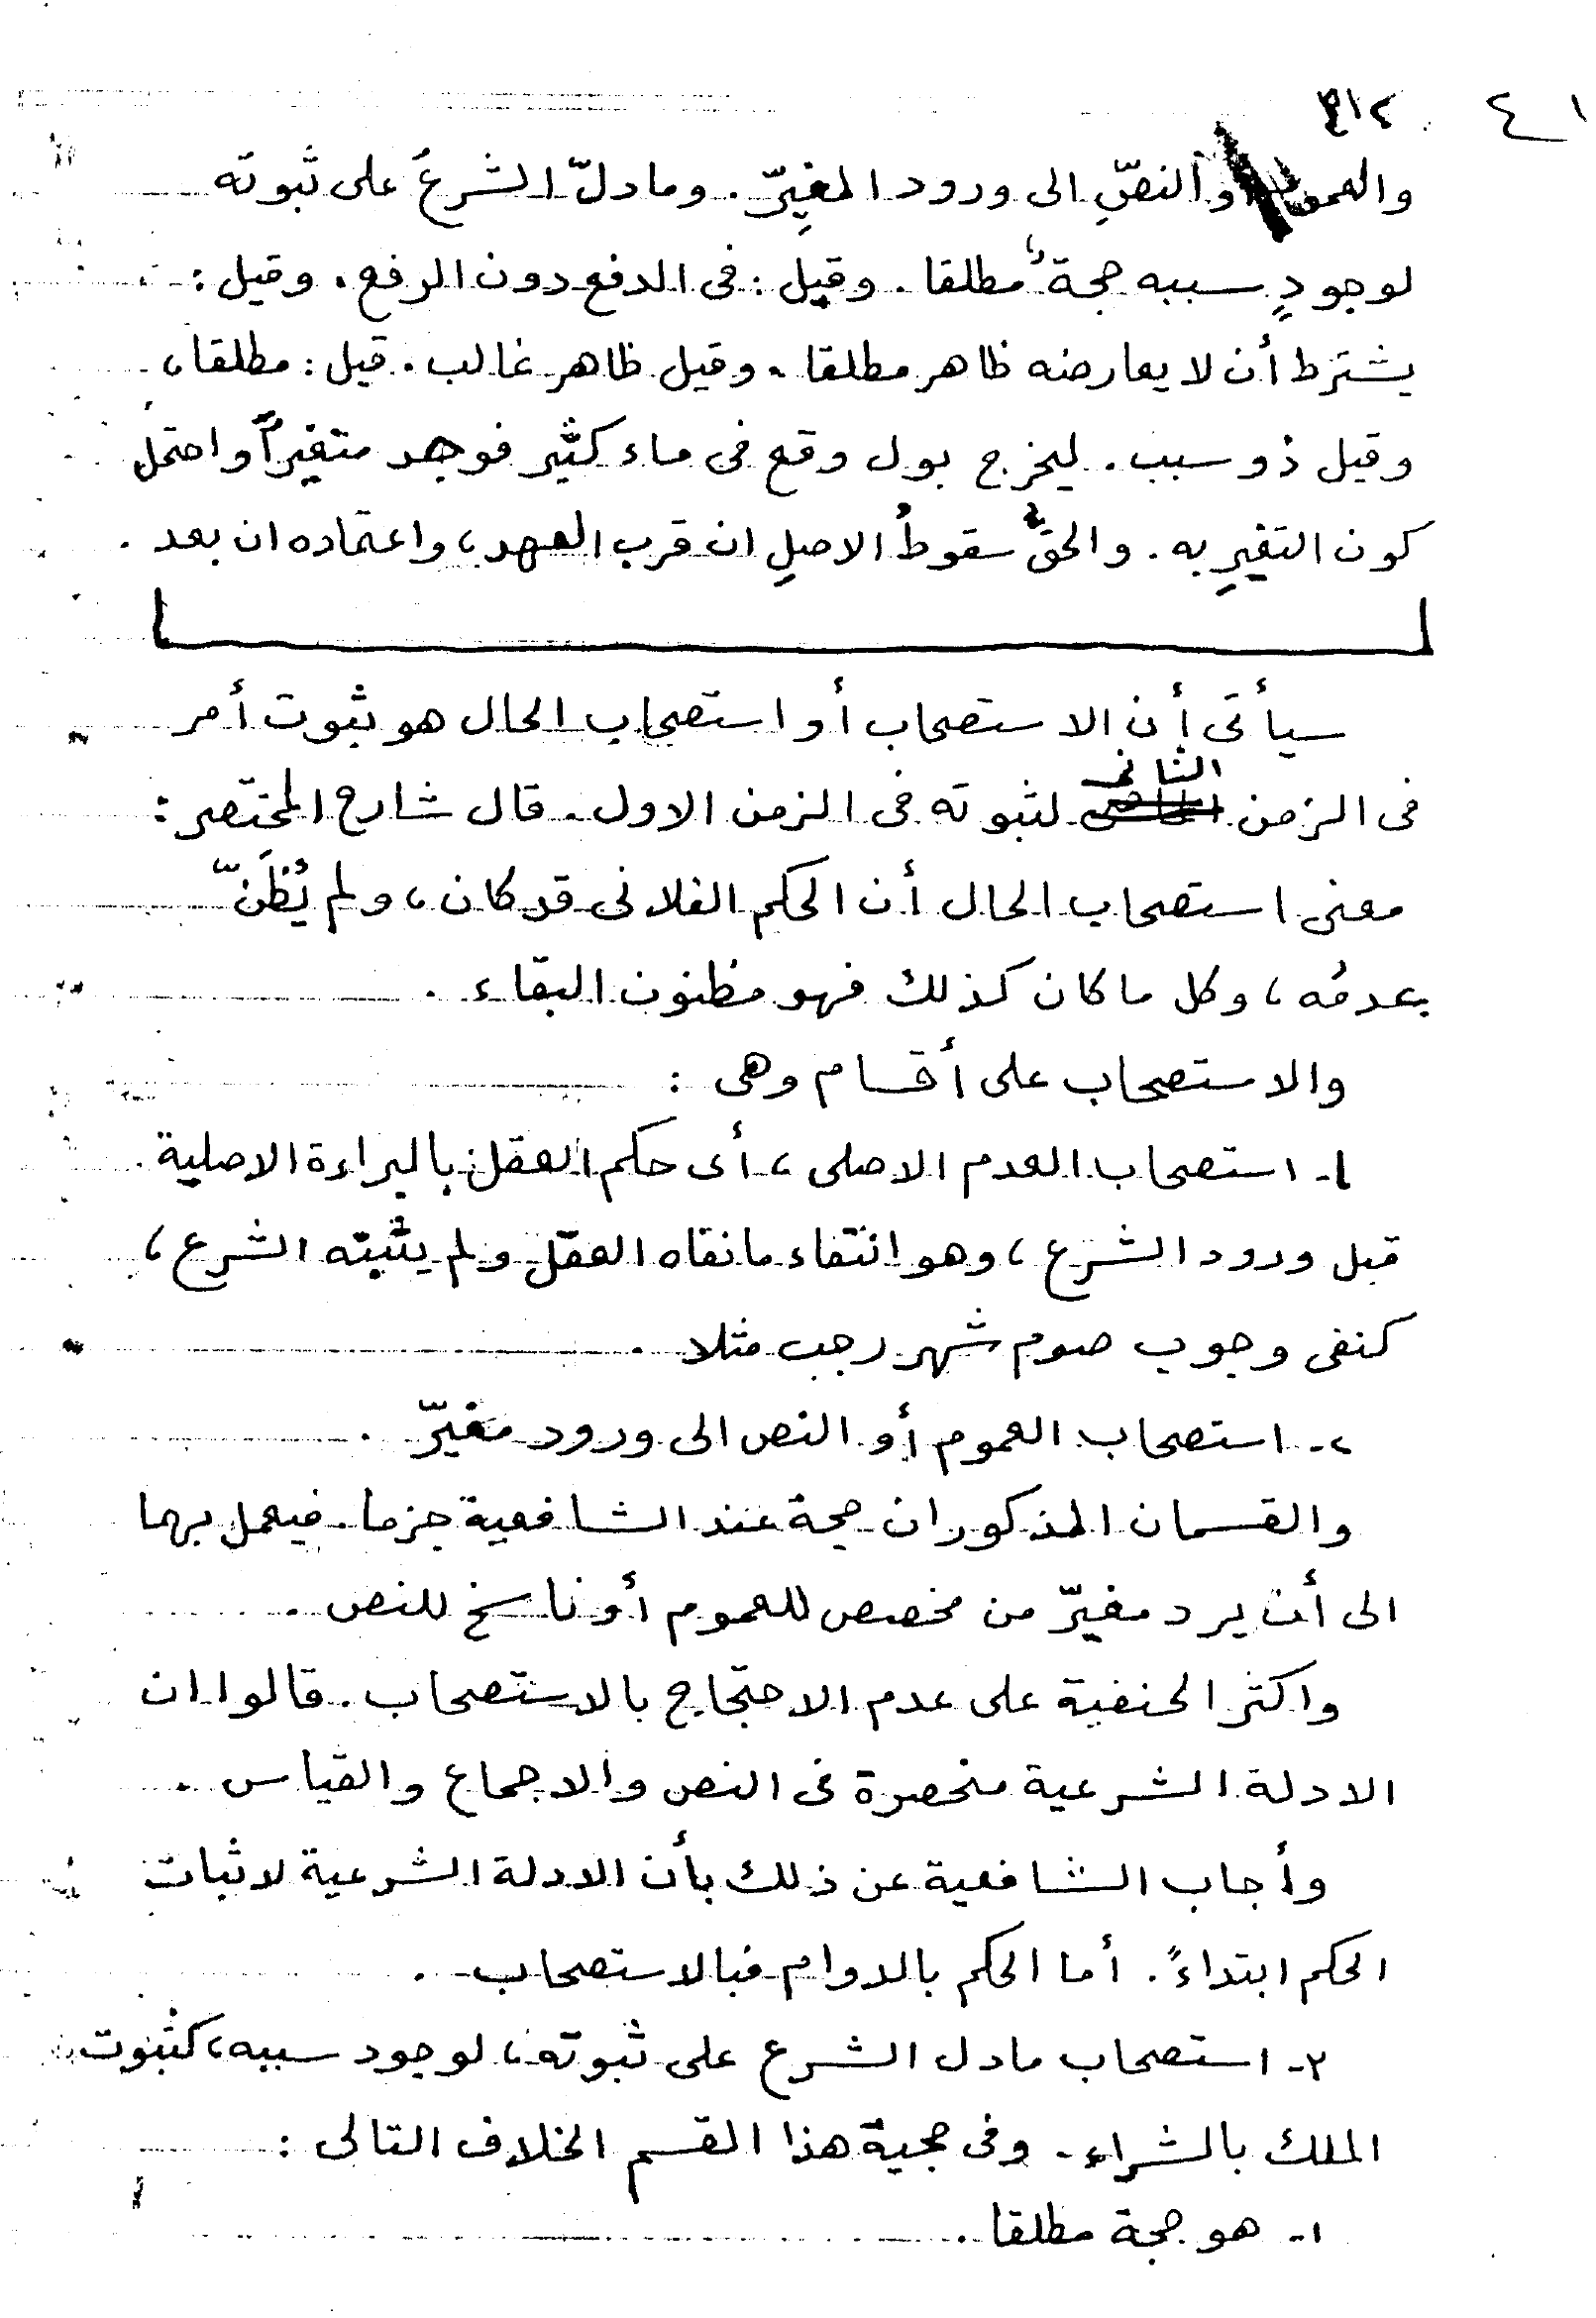 والعموم أو النصِّ الى ورود المغيِّر. وما دلّ الشرعُ على ثبوته
لوجودِ سببه حجة مطلقا. وقيل: فى الدفع دون الرفع. وقيل:
يشترط أن لا يعارضه ظاهر مطلقا. وقيل ظاهر غالب. قيل: مطلقا،
وقيل ذو سبب. ليخرج بول وقع فى ماء كثير فوجد متغيراً واحتمل
كون التغيرِ به. والحقُّ سقوطُ الاصلِ ان قرب العهد، واعتماده ان بعد.
سيأتى أن الاستصحاب أو استصحاب الحال هو ثبوت أمر
فى الزمن الثانى لثبوته فى الزمن الاول. قال شارح المختصر:
معنى استصحاب الحال أن الحكم الفلانى قد كان، ولم يُظَنّ
عدمُه، وكل ما كان كذلك فهو مظنون البقاء.
والاستصحاب على أقسام وهى:
١- استصحاب العدم الاصلى، أى حكم العقل بالبراءة الاصلية
قبل ورود الشرع، وهو انتفاء ما نفاه العقل ولم يثبته الشرع،
كنفى وجوب صوم شهر رجب مثلا.
٢- استصحاب العموم أو النص الى ورود مغيّر.
والقسمان المذكوران حجة عند الشافعية جزما. فيعمل بهما
الى أن يرد مغيّر من مخصص للعموم أو ناسخ للنص.
واكثر الحنفية على عدم الاحتجاج بالاستصحاب. قالوا ان
الادلة الشرعية منحصرة فى النص والاجماع والقياس.
وأجاب الشافعية عن ذلك بأن الادلة الشرعية لاثبات
الحكم ابتداءً. أما الحكم بالدوام فبالاستصحاب.
٣- استصحاب مادل الشرع على ثبوته، لوجود سببه، كثبوت
الملك بالشراء. وفى حجية هذا القسم الخلاف التالى:
١- هو حجة مطلقا.